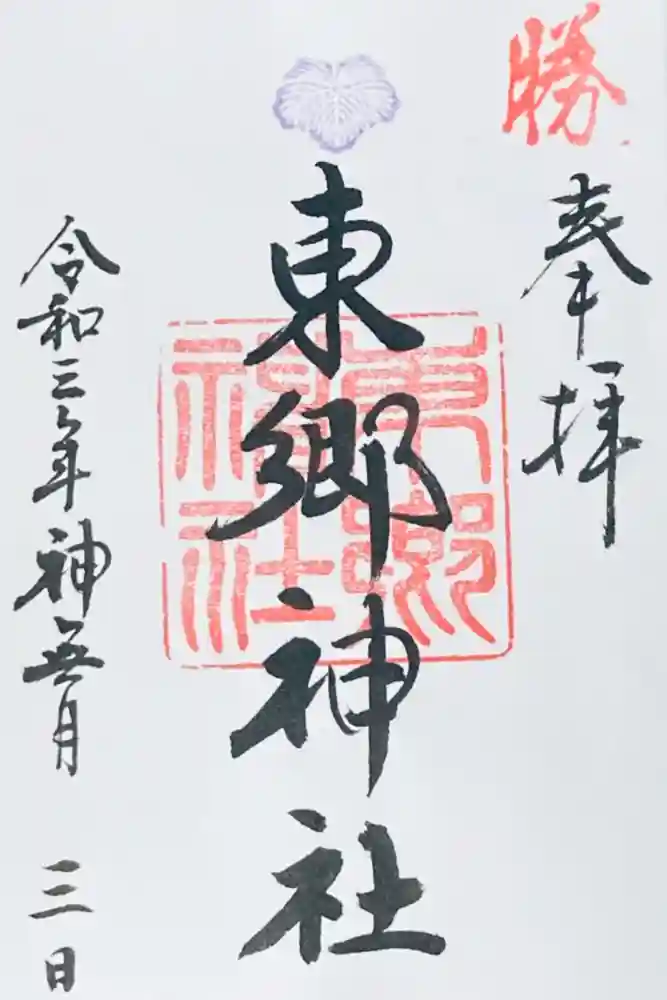 勝
奉拝
東郷神社
東郷神社
令和三年神無月
三日